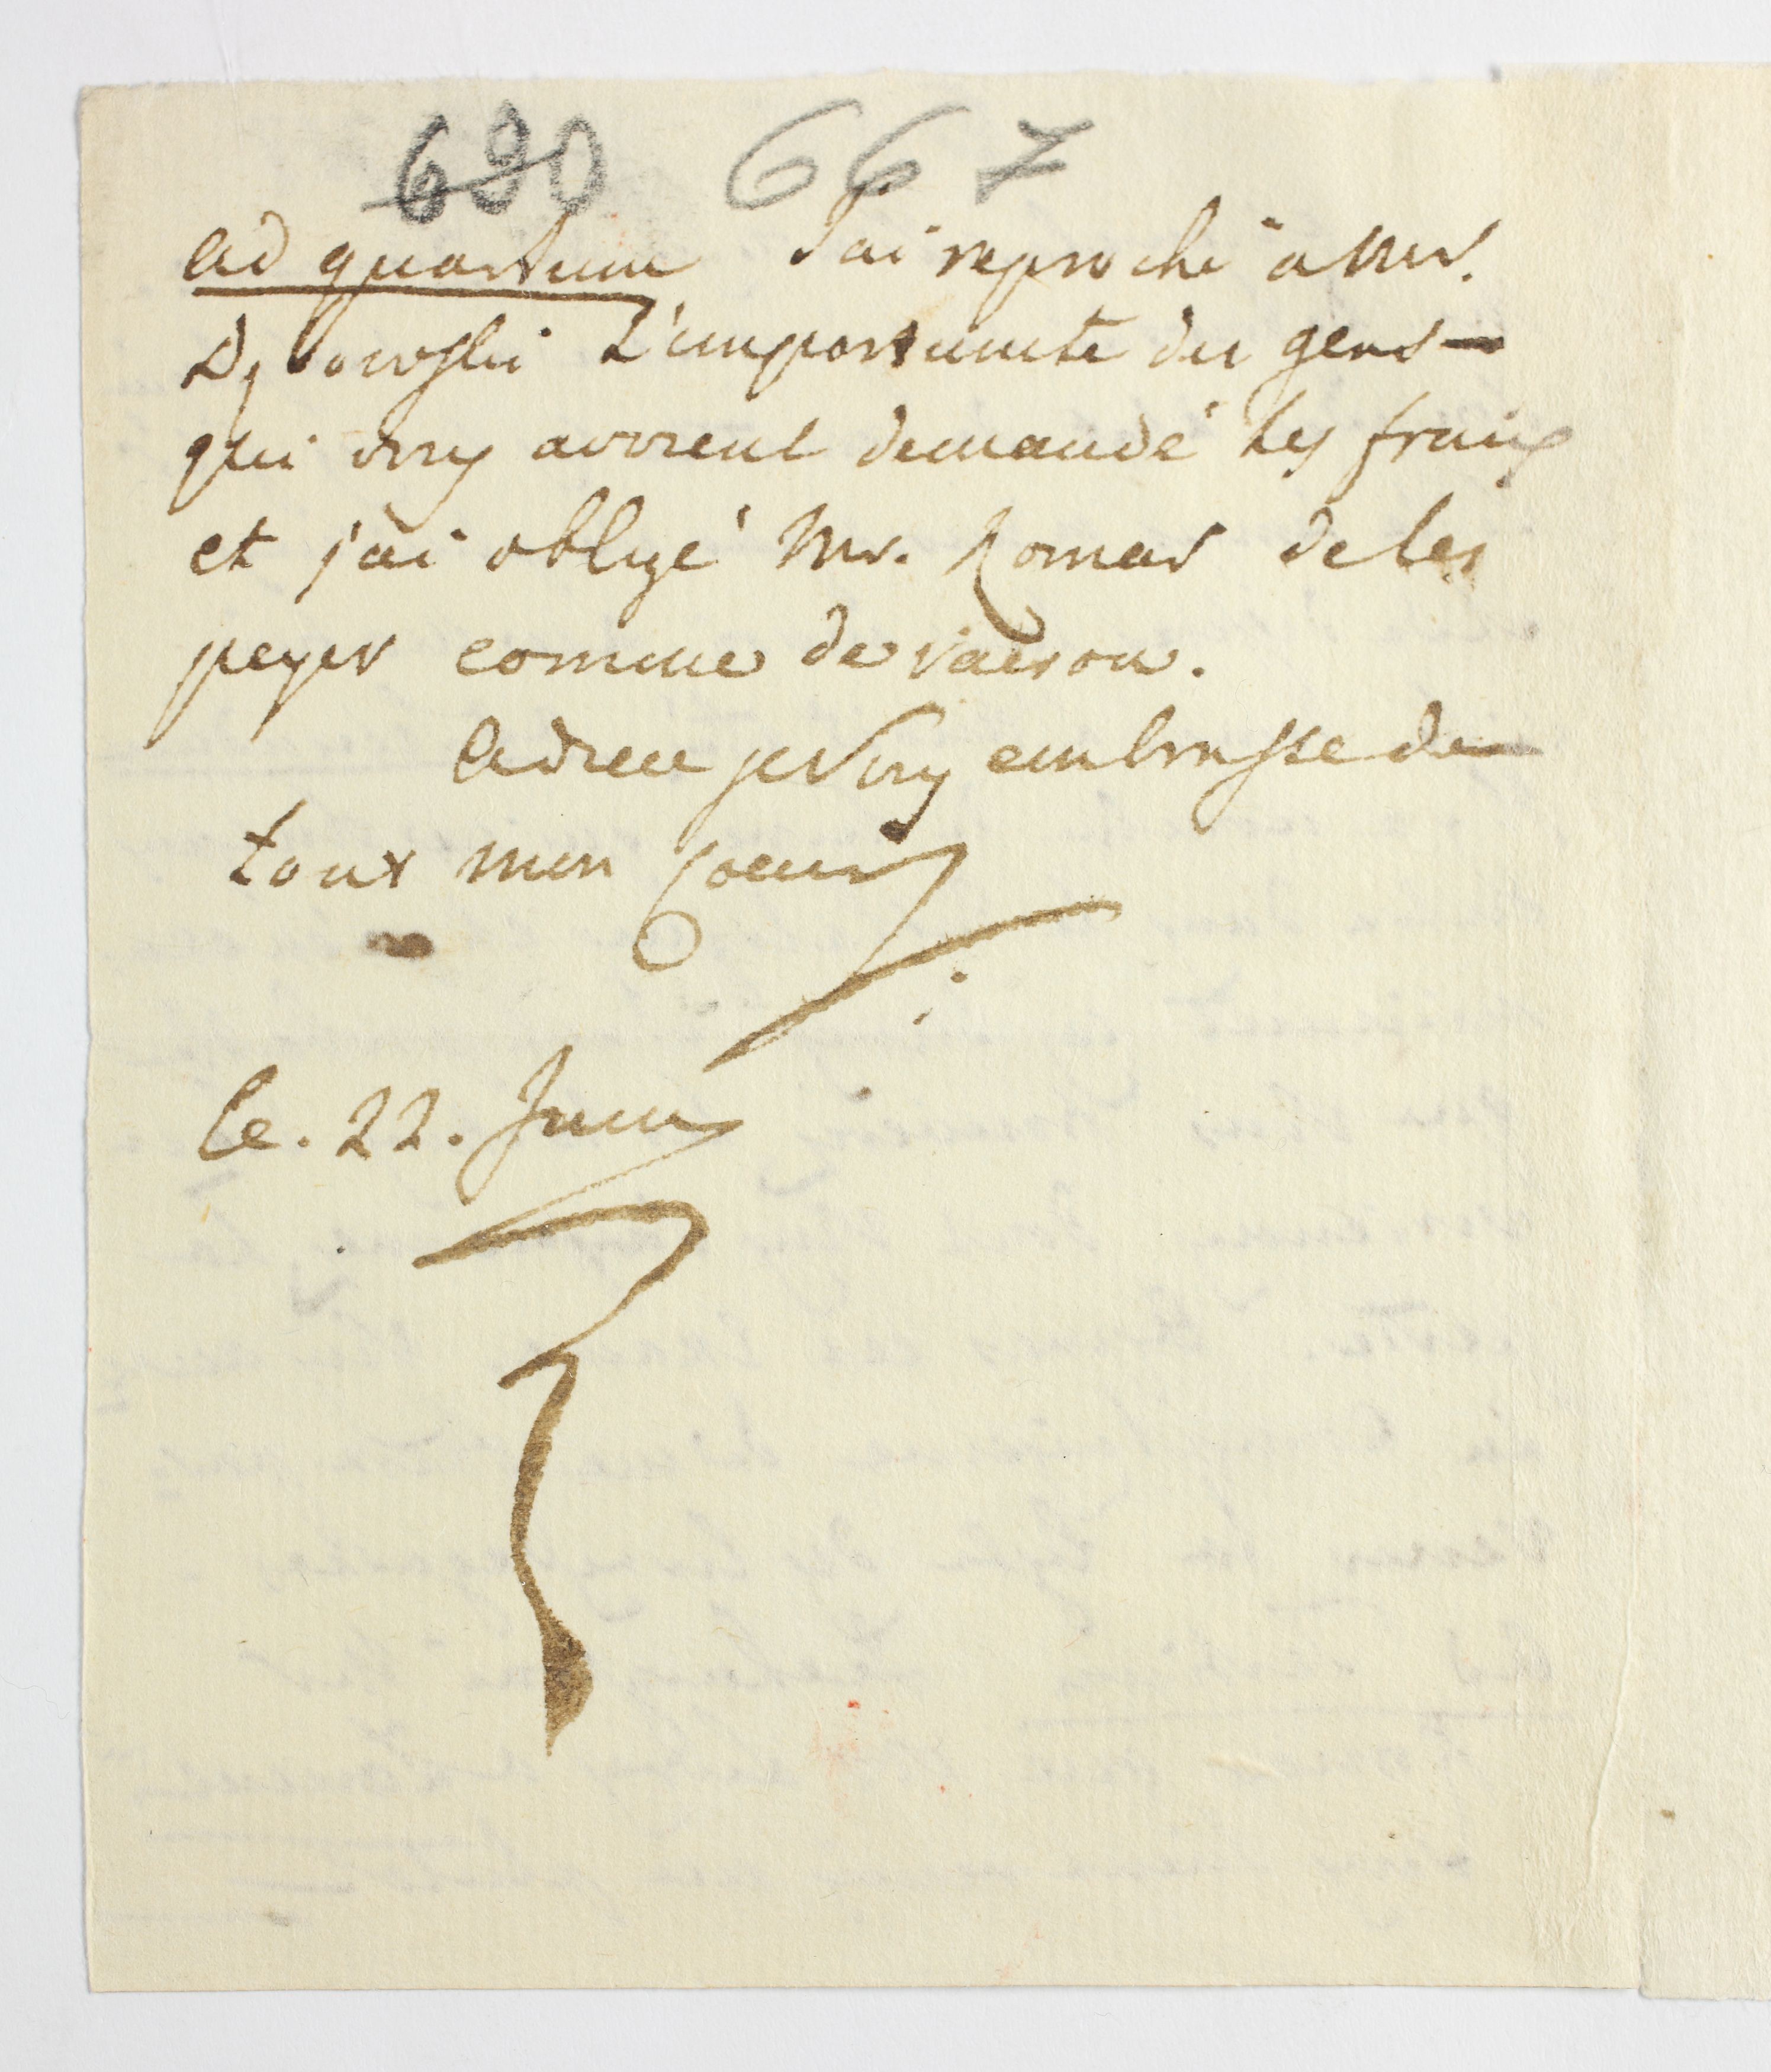 680 667
ad quartum J'ai reproché a Mr.
L'importunité des gens
qui vous avoient demandé les fraix
et j'ai obligé Mr. Romar de les
peyer comme de raison.
adieu je vous embrasse de
tout mon coeur
le. 22. Juin